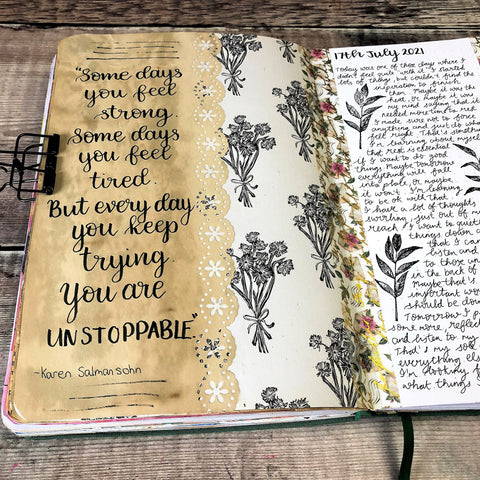 "Some days
you feel
strong.
Some days
you feel
tired.
But every day
you keep
trying.
You are
UNSTOPPABLE."
~Karen Salmansohn
17th July 2021
Today was one of those days where I
didn't feel quite with it. I started
lots of things, but couldn't find the
inspiration to finish
them. Maybe it was the
heat, or maybe it was
my mind saying that it
needed more time to rest.
I made sure not to force
anything and just do what
felt right. That's something
I'm learning about myself,
that rest is essential
if I want to do good
things. Maybe tomorrow
everything will fall
into place, or maybe
it won't. I'm learning
to be ok with that.
I have a lot of thoughts
swirling just out of my
reach. I want to quiet
things down a
that I can
listen and
to those un
in the back of
Maybe that's
important wor
should be do
Tomorrow I p
some more, reflec
and listen to my
That's my sol
everything else
I'm looking f
what things